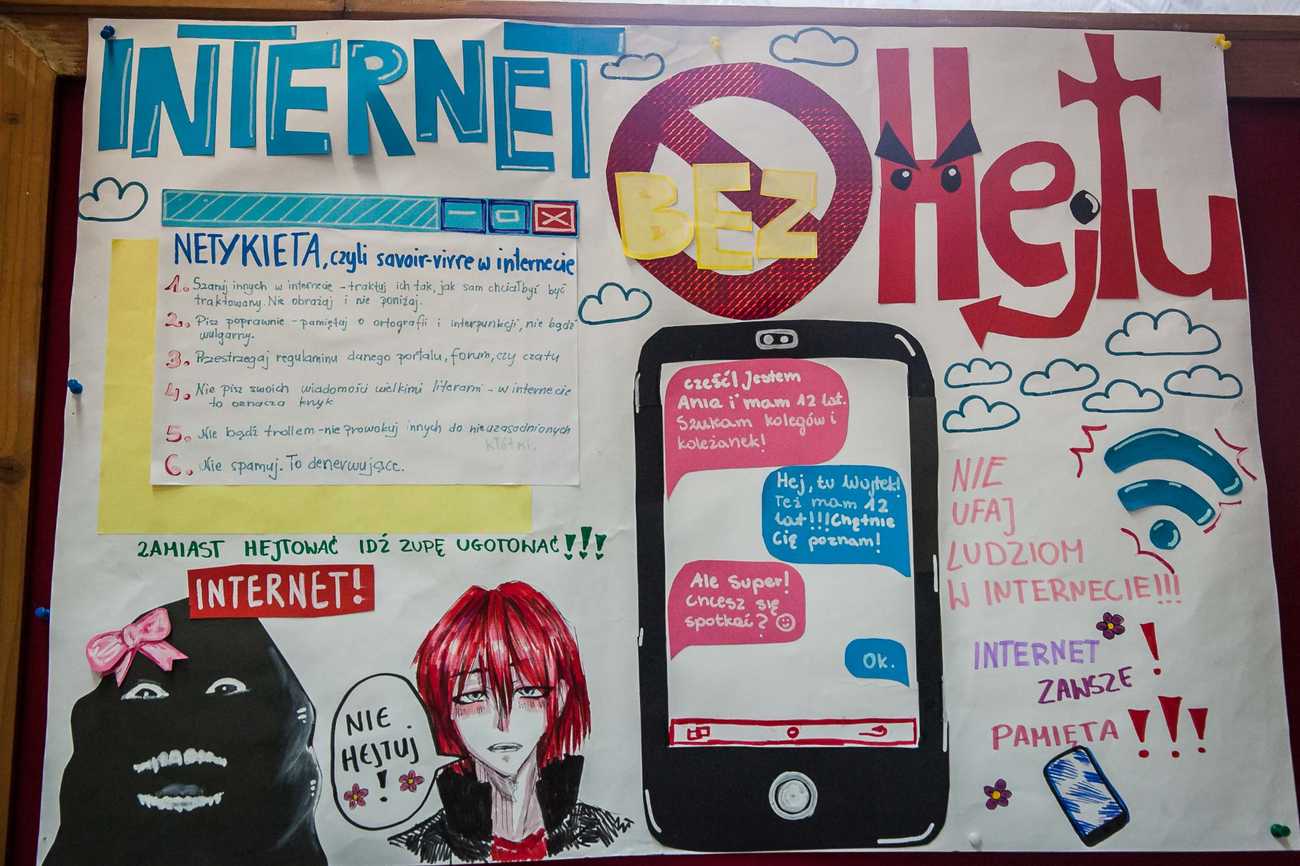 INTERNET
BEZ
HejTu
NETYKIETA, czyli savoir-vivre w internecie
1. Szanuj innych w internecie - traktuj ich tak, jak sam chciałbyś być
traktowany. Nie obrażaj i nie poniżaj.
2. Pisz poprawnie - pamiętaj o ortografii i interpunkcji, nie bądź
wulgarny.
3. Przestrzegaj regulaminu danego portalu, forum, czy czatu
4. Nie pisz swoich wiadomości wielkimi literami - w internecie
to oznacza krzyk
5. Nie bądź trollem - nie prowokuj innych do nieuzasadnionych
kłótni.
6. Nie spamuj. To denerwujące.
ZAMIAST HEJTOWAĆ IDŹ ZUPĘ UGOTOWAĆ!!!
INTERNET!
NIE
HEJTUJ
!
cześć! Jestem
Ania i mam 12 lat.
Szukam kolegów i
koleżanek!
Hej, tu Wojtek!
Też mam 12
lat!!! Chętnie
Cię poznam!
Ale super!
Chcesz się
spotkać? ☺
Ok.
NIE
UFAJ
LUDZIOM
W INTERNECIE!!!
INTERNET !
ZAWSZE
PAMIĘTA !!!